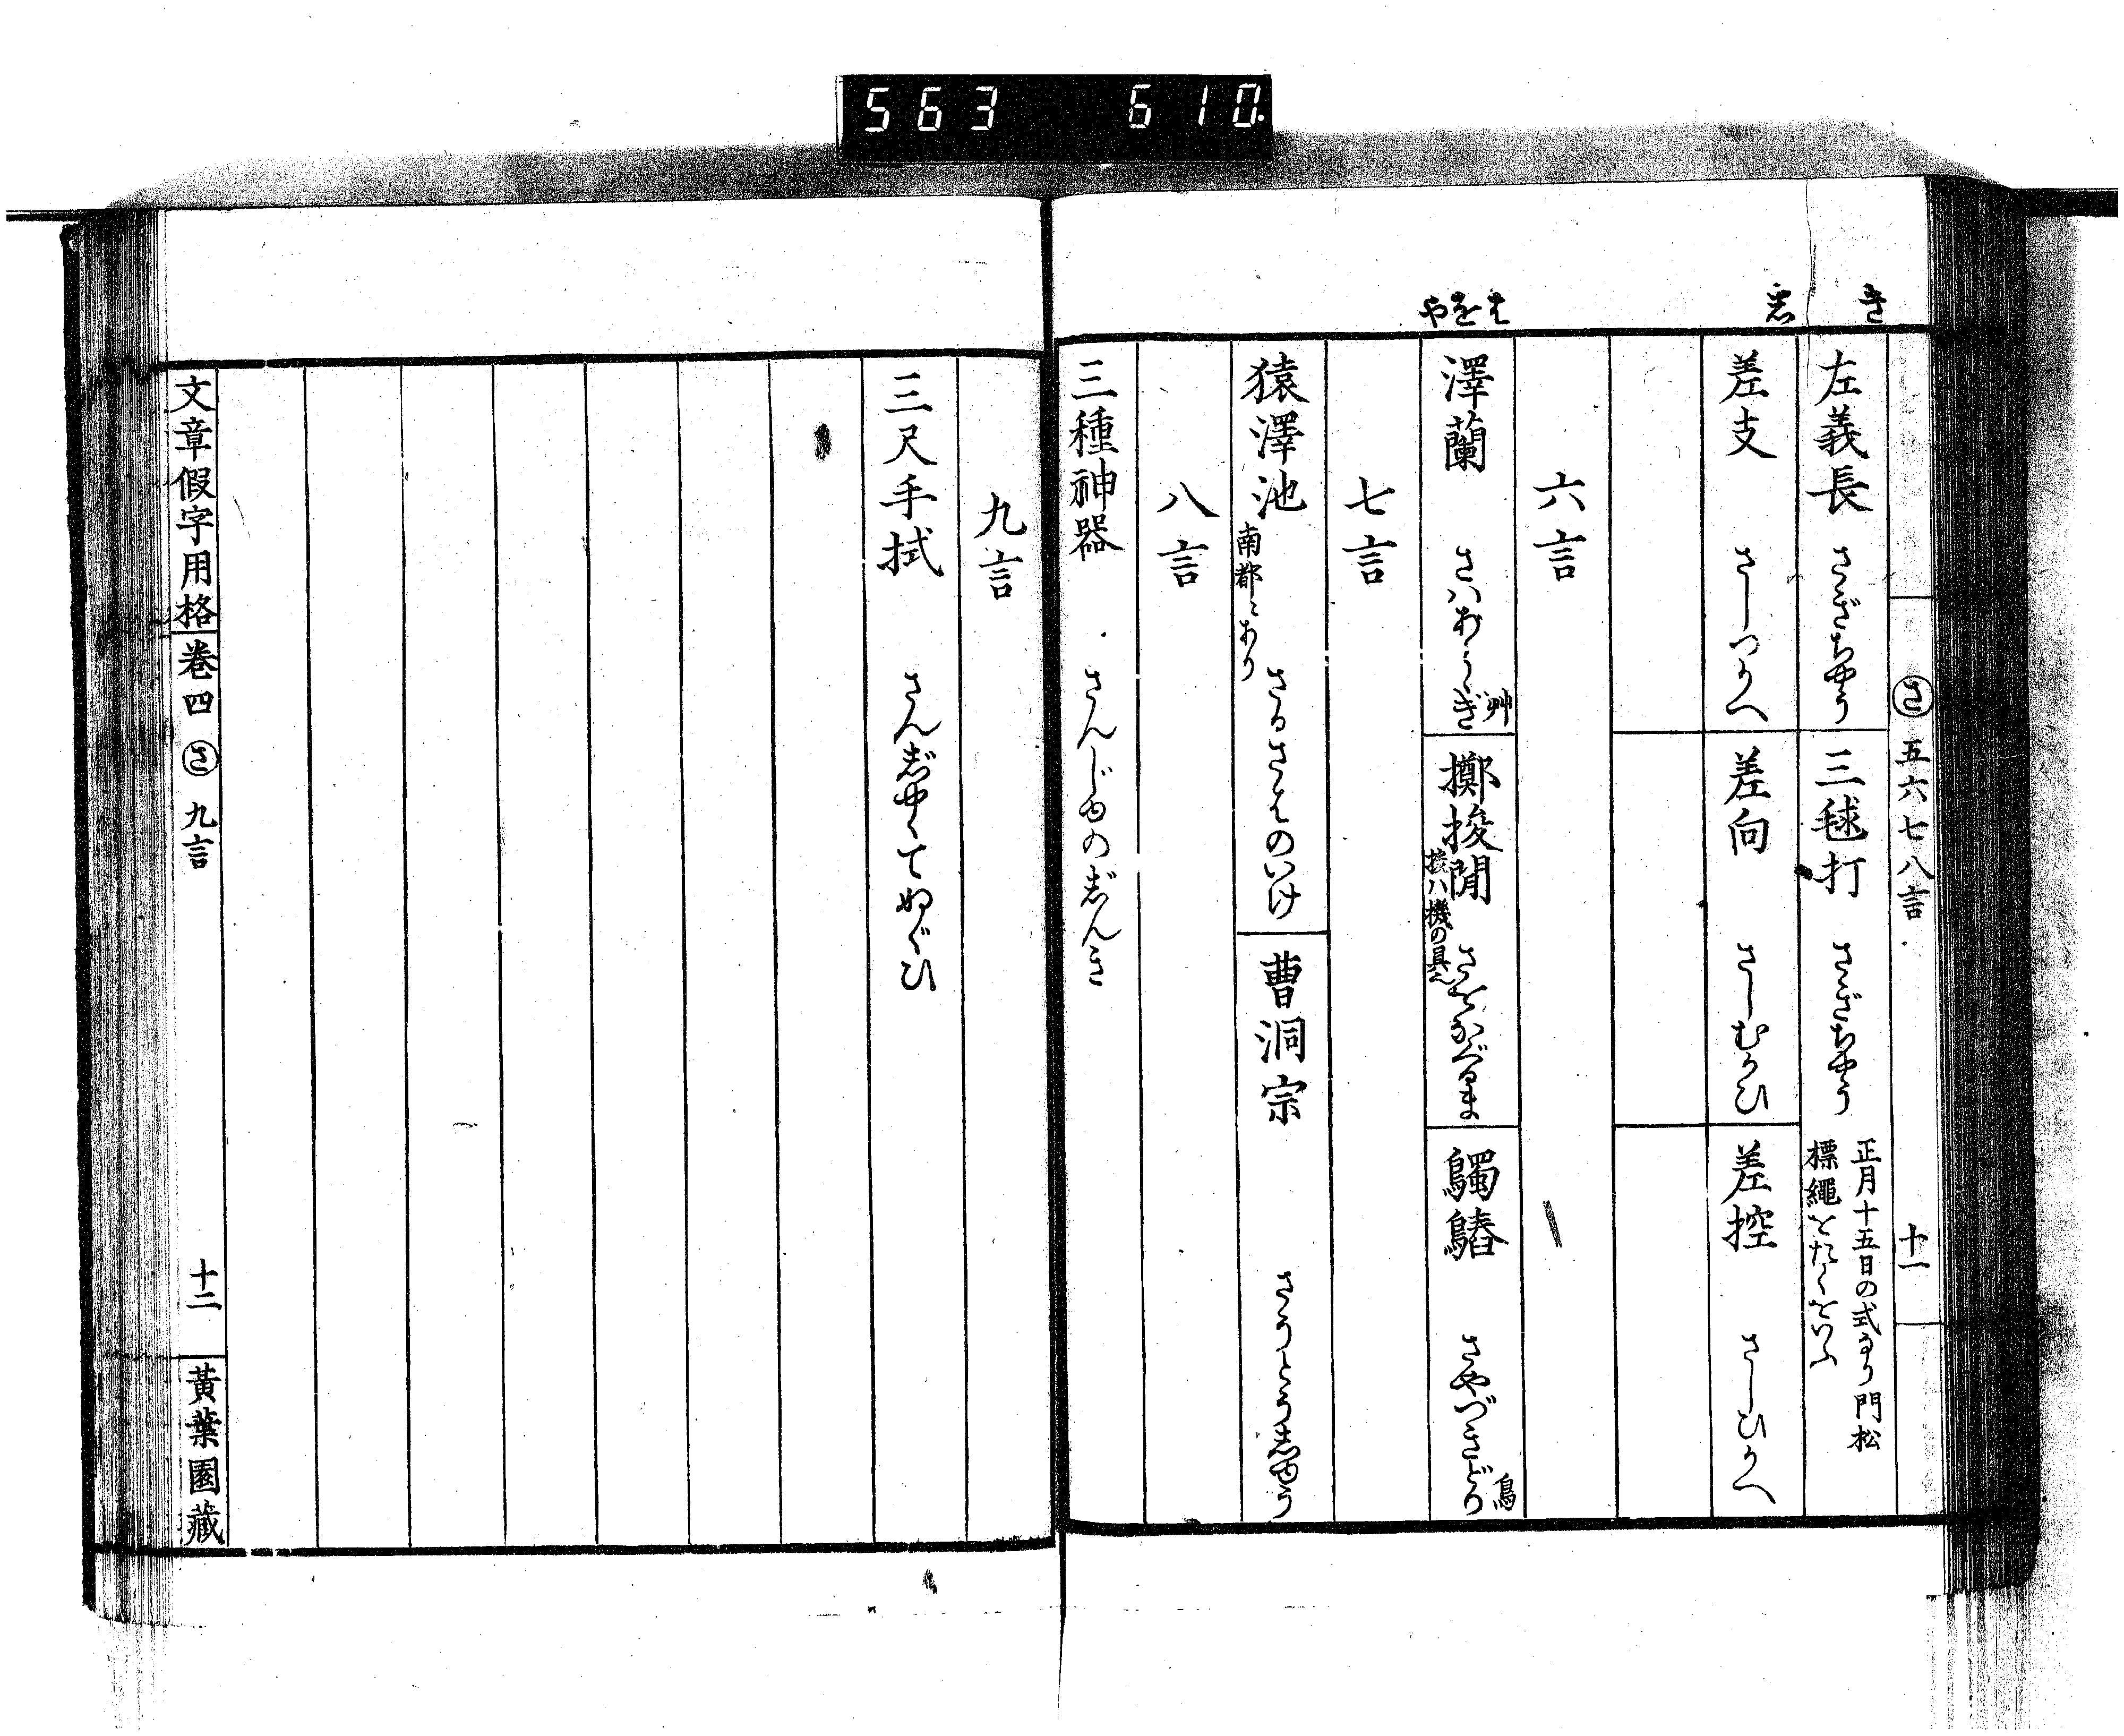 563 610
き
志
はをや
さ 五六七八言 十一
左義長 さぎちやう
三毬打 さぎちやう 正月十五日の式なり門松
標繩をたくをいふ
差支 さしつかへ
差向 さしむかひ
差控 さしひかへ
六言
澤蘭 さはあらゝぎ 艸
擲梭閒 梭ハ機の具也 さをなぐるま
鸀 さやづきどり 鳥
七言
猿澤池 南都ニあり さるさはのいけ
曹洞宗 さうとうしゆう
八言
三種神器 さんじゆのしんき
九言
三尺手拭 さんじやくてぬぐひ
文章假字用格 卷四 さ 九言 十二 黃葉園藏